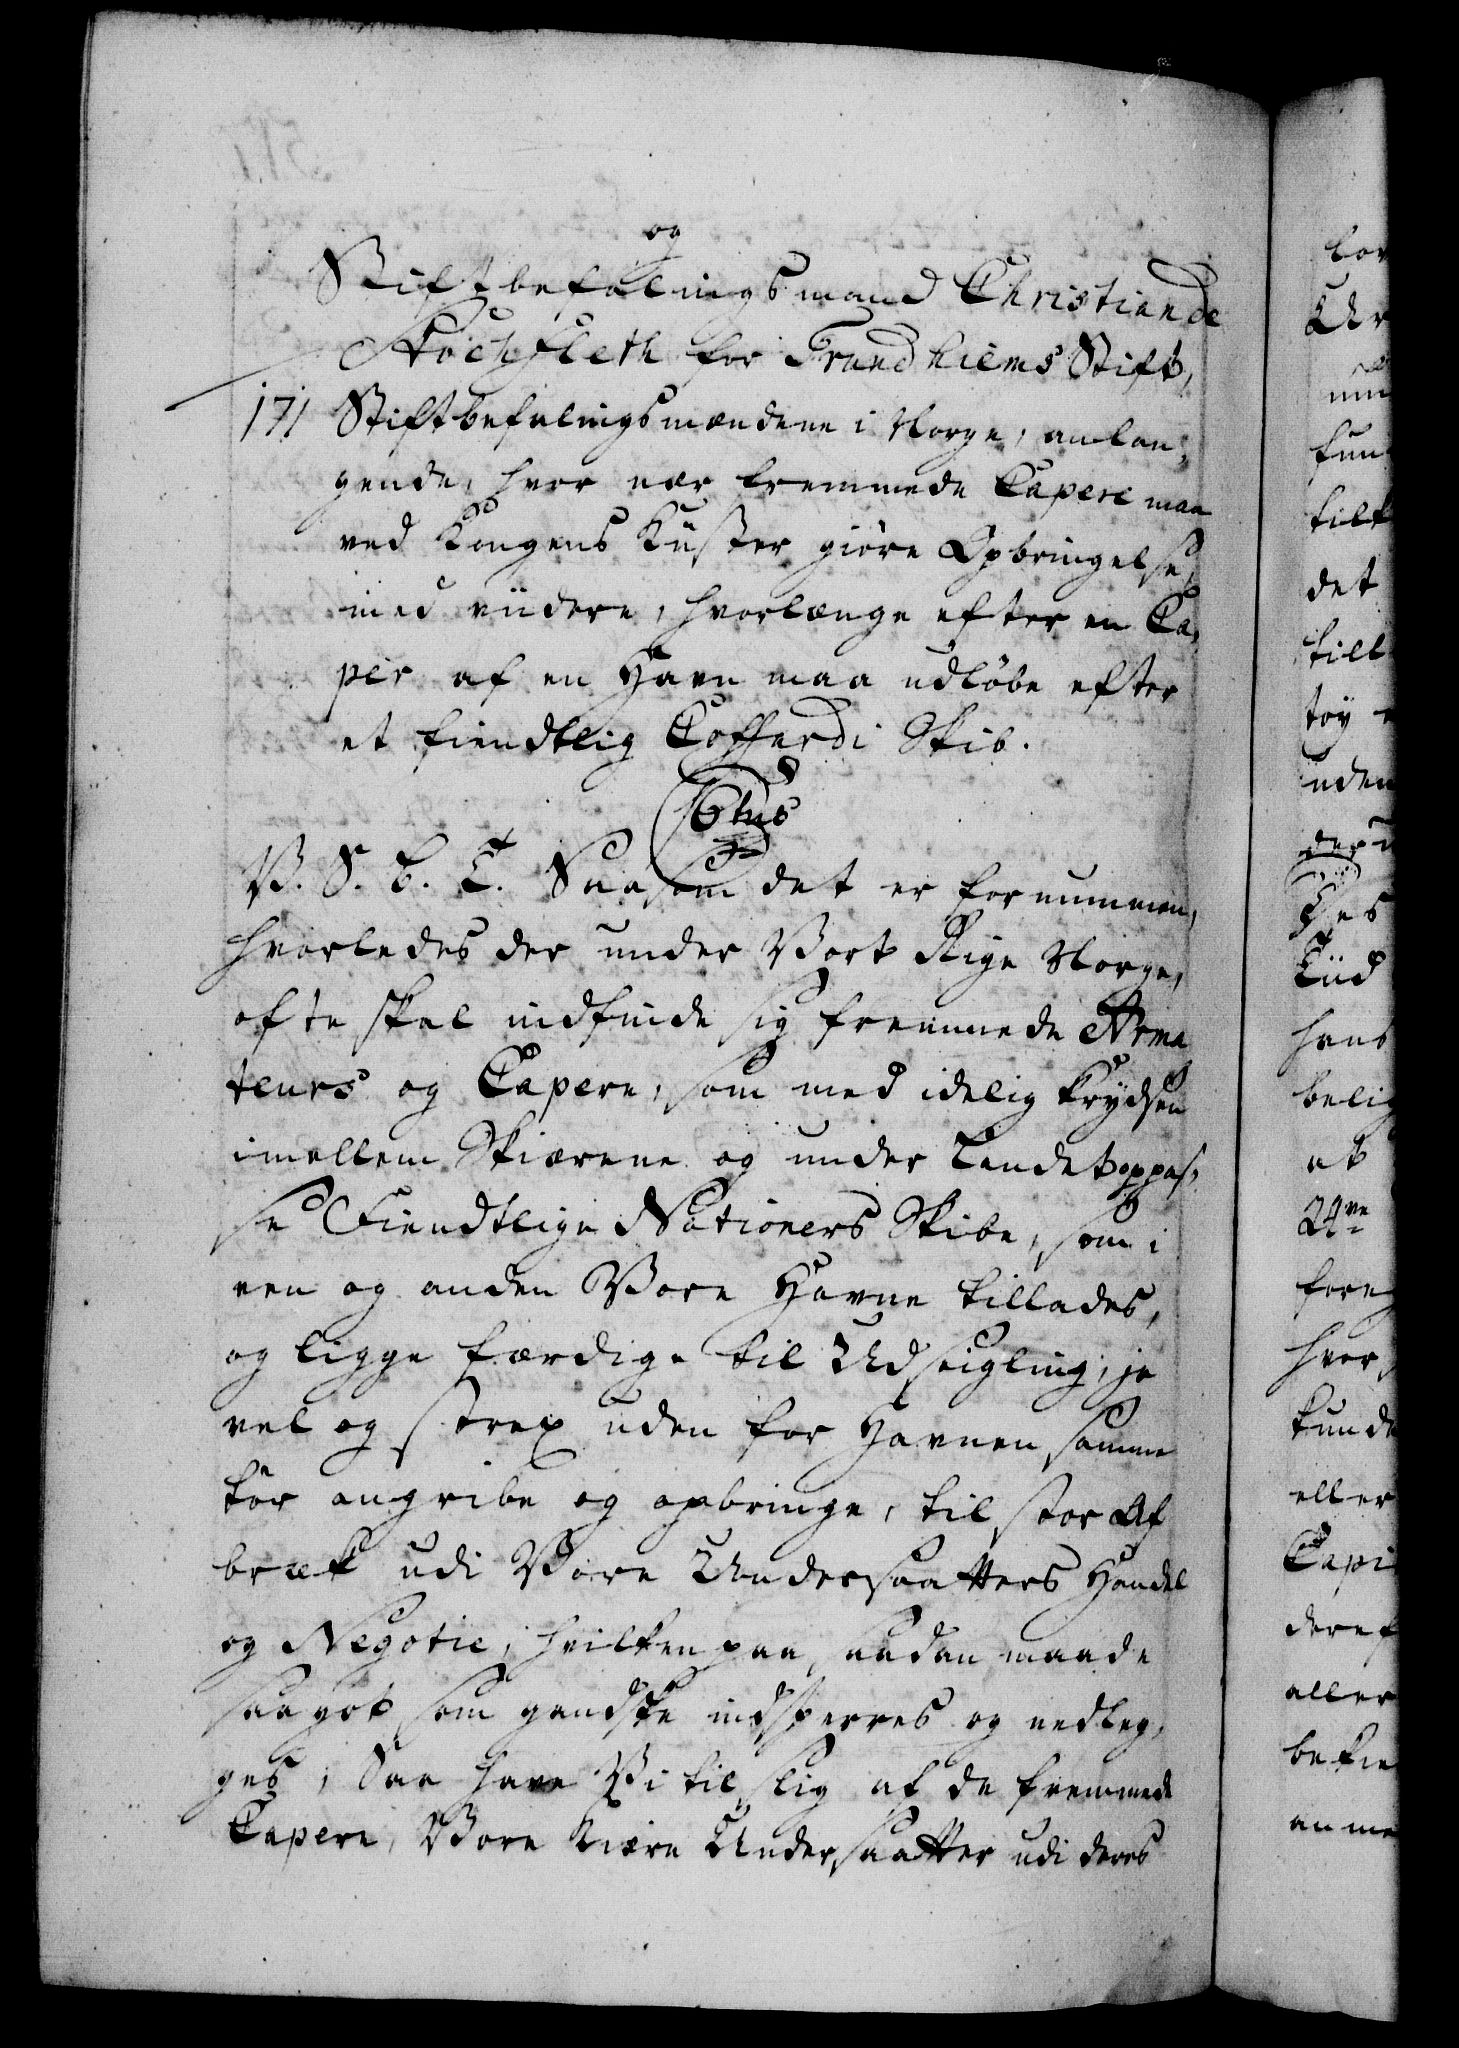 og
Stiftbefalingsmand Christian de
Stockfleth for Trundhiems Stift,
171 Stiftbefalingsmændene i Norge, anlan-
gende, hvor nær fremmede Capere maa
ved Kongens Küster giøre Opbringelse,
med viidere, hvorlænge efter en Ca-
per af en Havn maa udløbe efter
et fiendtlig Coffardi Skib.
V. S. G. T. Saasom det er fornummen,
hvorledes der under Vort Rige Norge,
ofte skal indfinde sig fremmede Arma
teurs og Capere, som med idelig krydsen
imellem Skiærene og under Landet oppas-
se Fiendtlige Nationers Skibe, som i
een og anden Vore Havne tillades,
og ligge færdige til Udseigling, ja
vel og strax uden for Havnen samme
tør angribe og opbringe, til stor Af
bræk udi Vore Undersaatters Handel
og Negotie, hvilken paa saadan maade
saagot som gandske indsperres og nedleg-
ges, Saa have Vi til slig af de fremmede
Capere, Vore Kiære Undersaatter udi deres